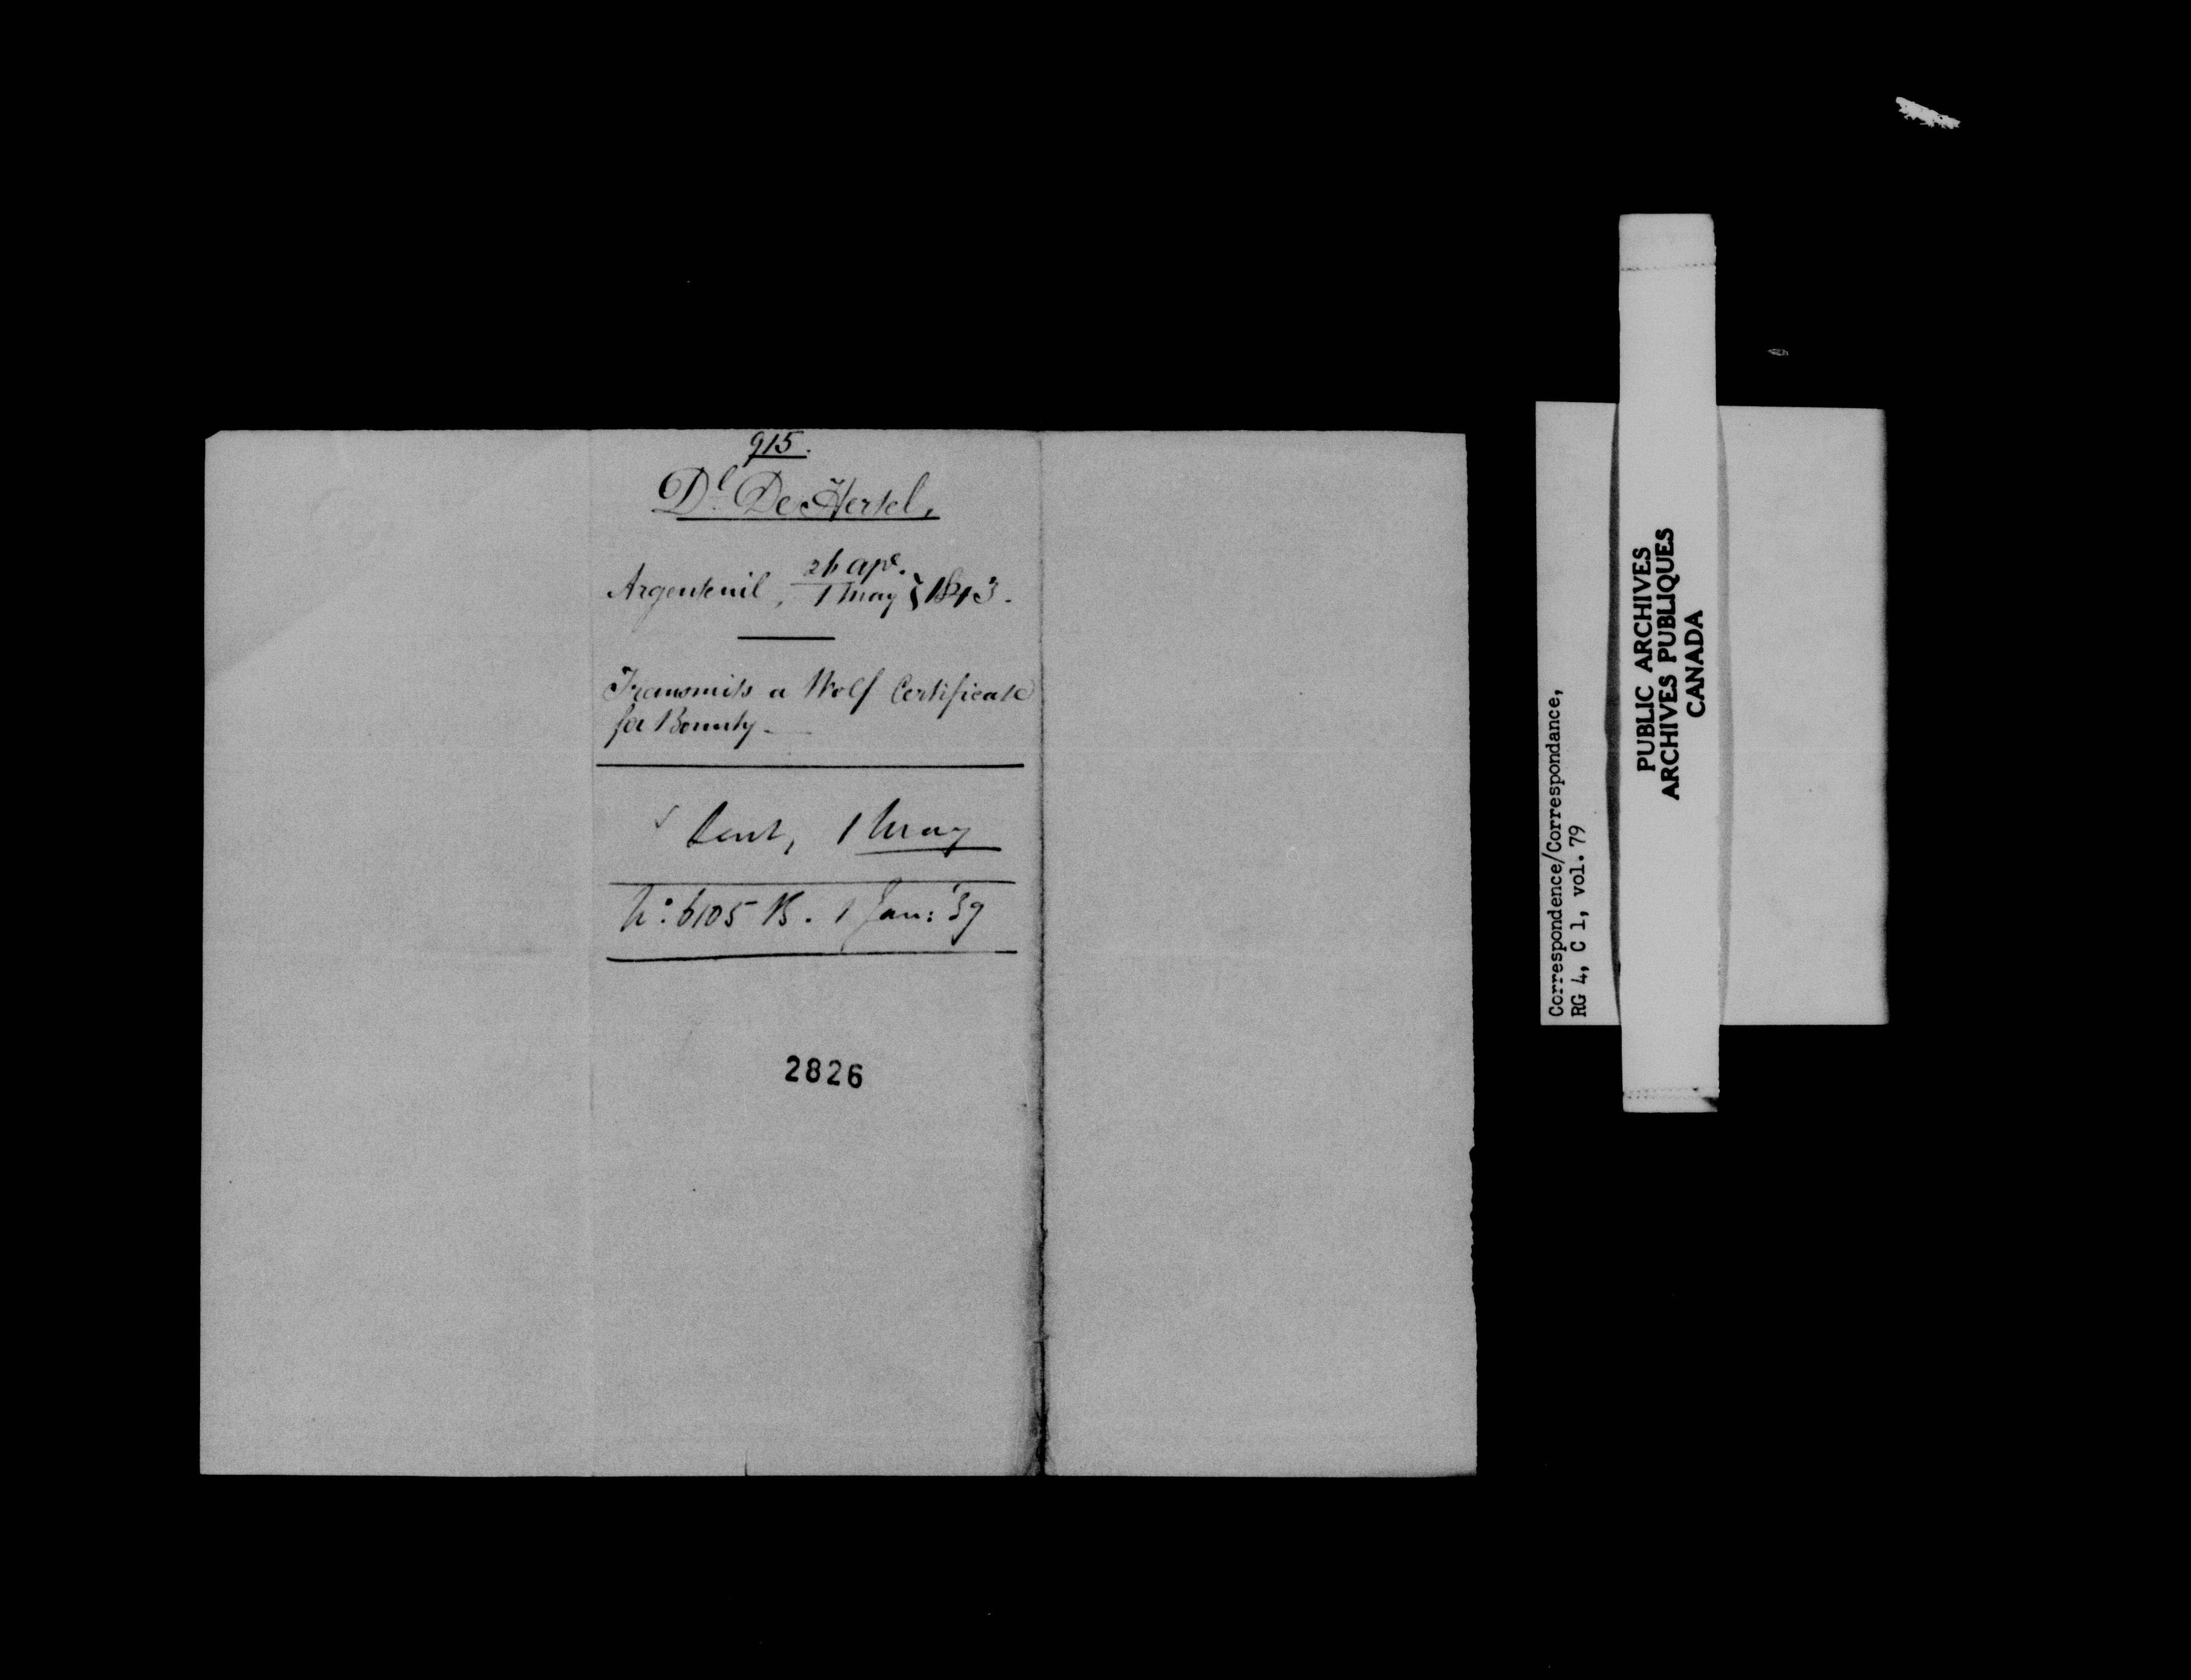 915.
Dl. De Hertel,
Argenteuil, 26 apl. / 1 May } 1843.
Transmits a Wolf Certificate
for Bounty
1 May
No: 6105 B. 1 Jan: '39
2826
Correspondence/Correspondance,
RG 4, C 1, vol. 79
PUBLIC ARCHIVES
ARCHIVES PUBLIQUES
CANADA